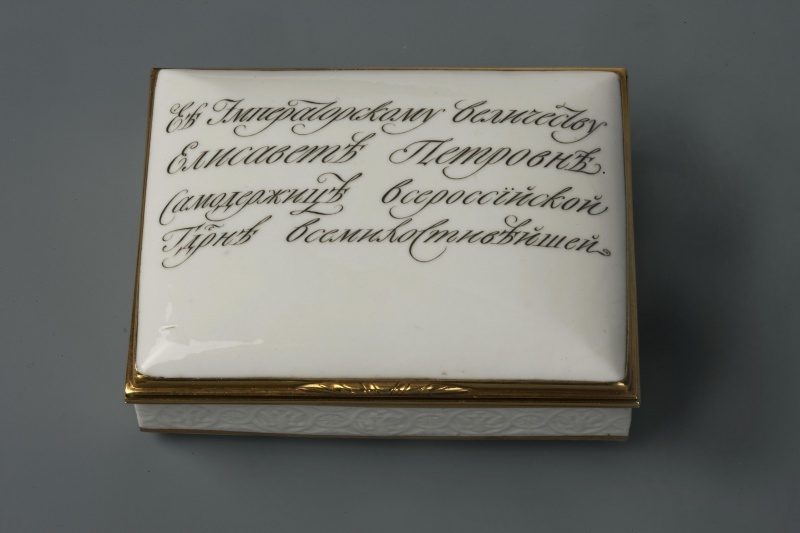 Еѣ Імператорскому величеству
Елисаветѣ Петровнѣ
Самодержицѣ всероссїйской
Гдрнѣ всемилостивѣйшей